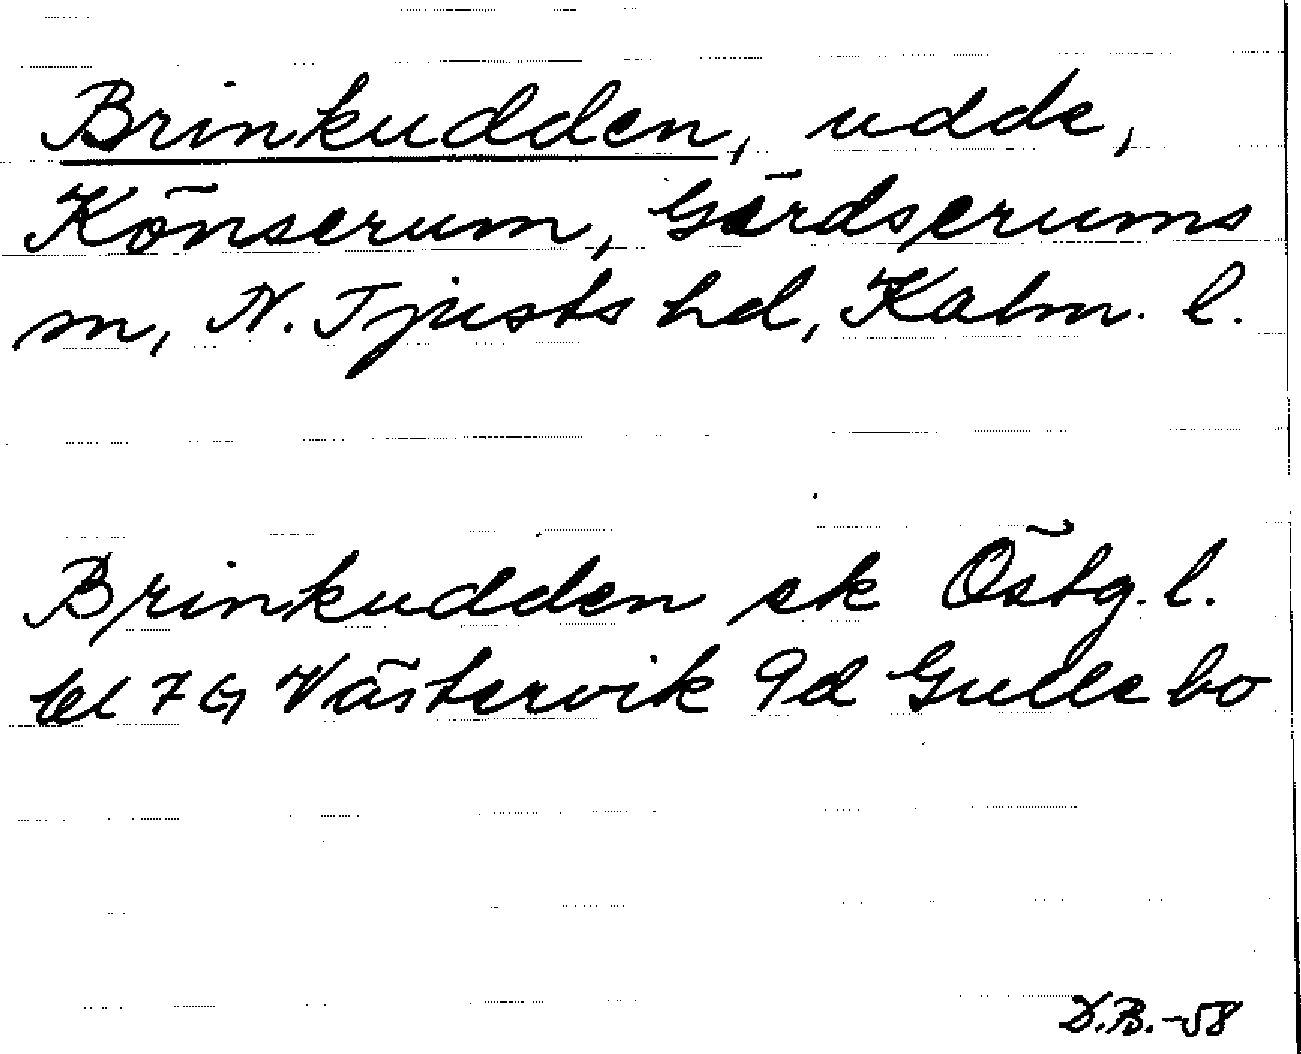 Brinkudden, udde,
Könserum, Gärdserums
sn, N. Tjusts hd, Kalm. l.
Brinkudden ek Östg. l.
bl 7 G Västervik 9d Gullebo
D.B.-58